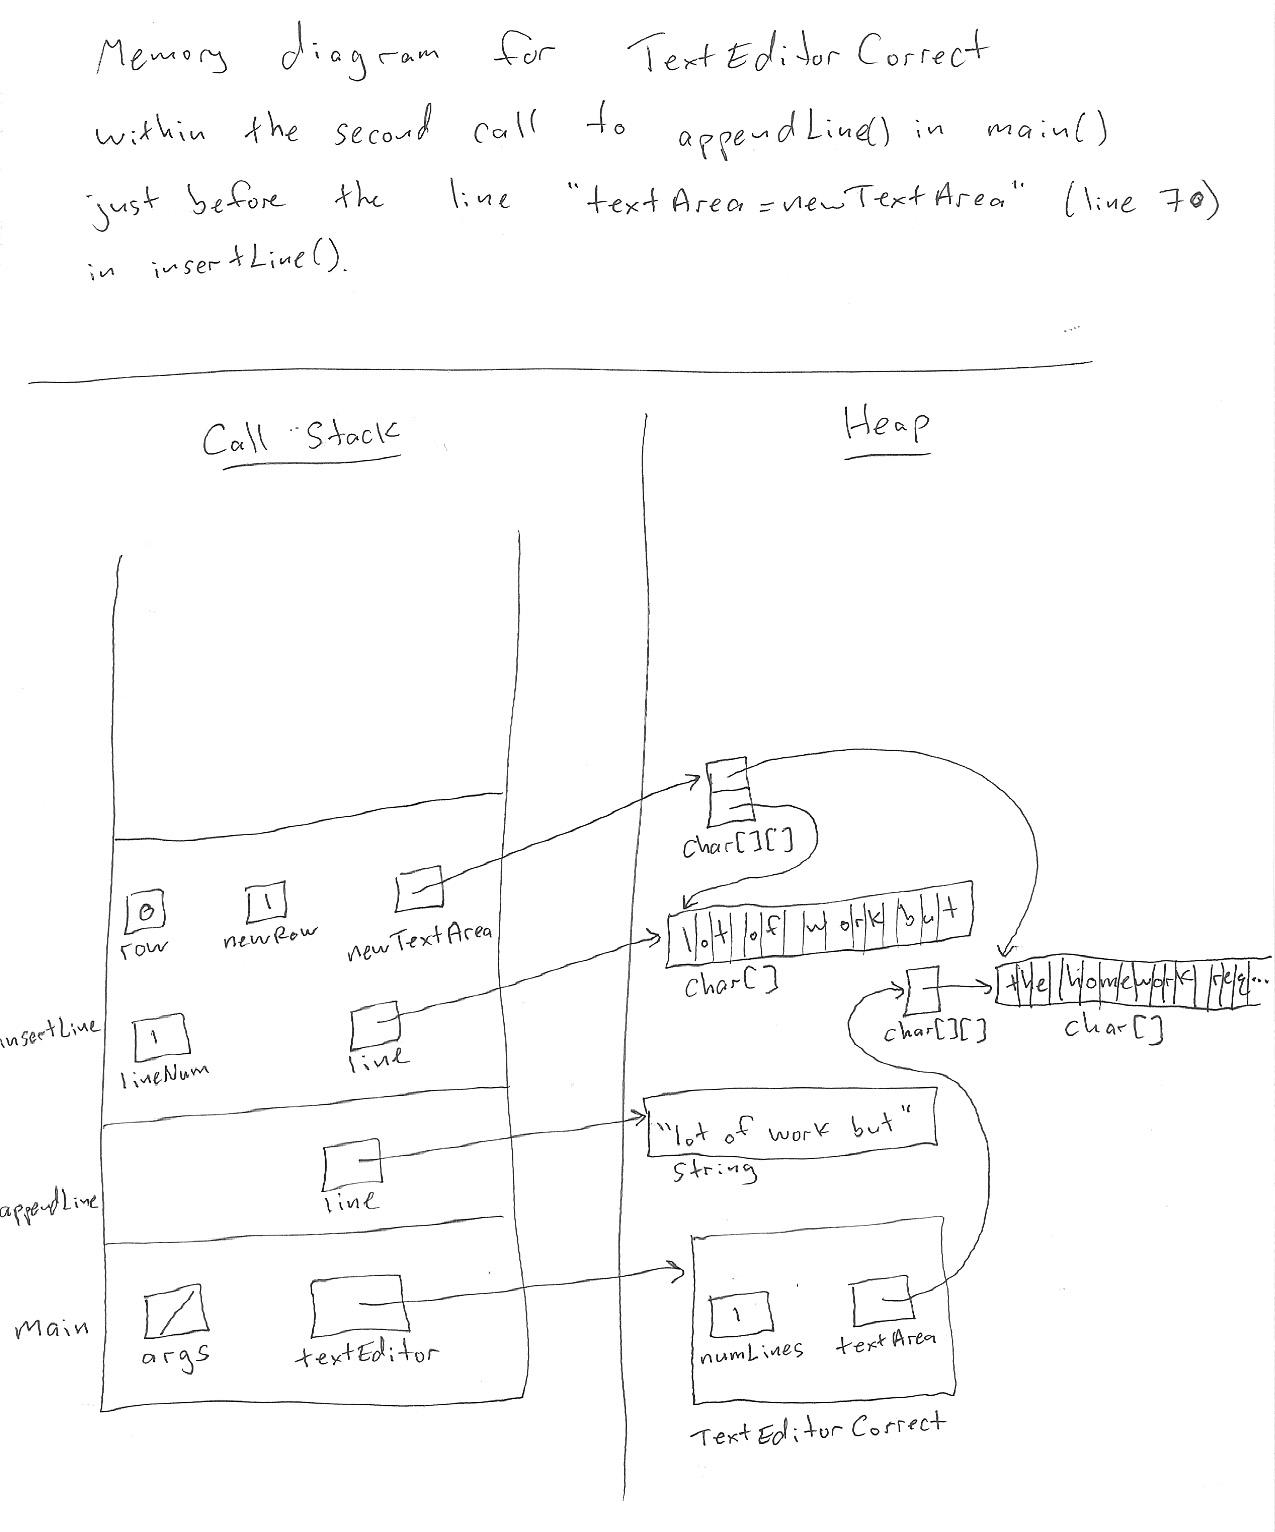 Memory diagram for TextEditorCorrect
within the second call to appendLine() in main()
just before the line "textArea = newTextArea" (line 70)
in insertLine().
Call Stack
Heap
char[][]
0
row
1
newRow
newTextArea
lot of work but
char[]
the homework req...
char[]
char[][]
insertLine
1
lineNum
line
"lot of work but"
String
appendLine
line
main
args
textEditor
1
numLines
textArea
TextEditorCorrect